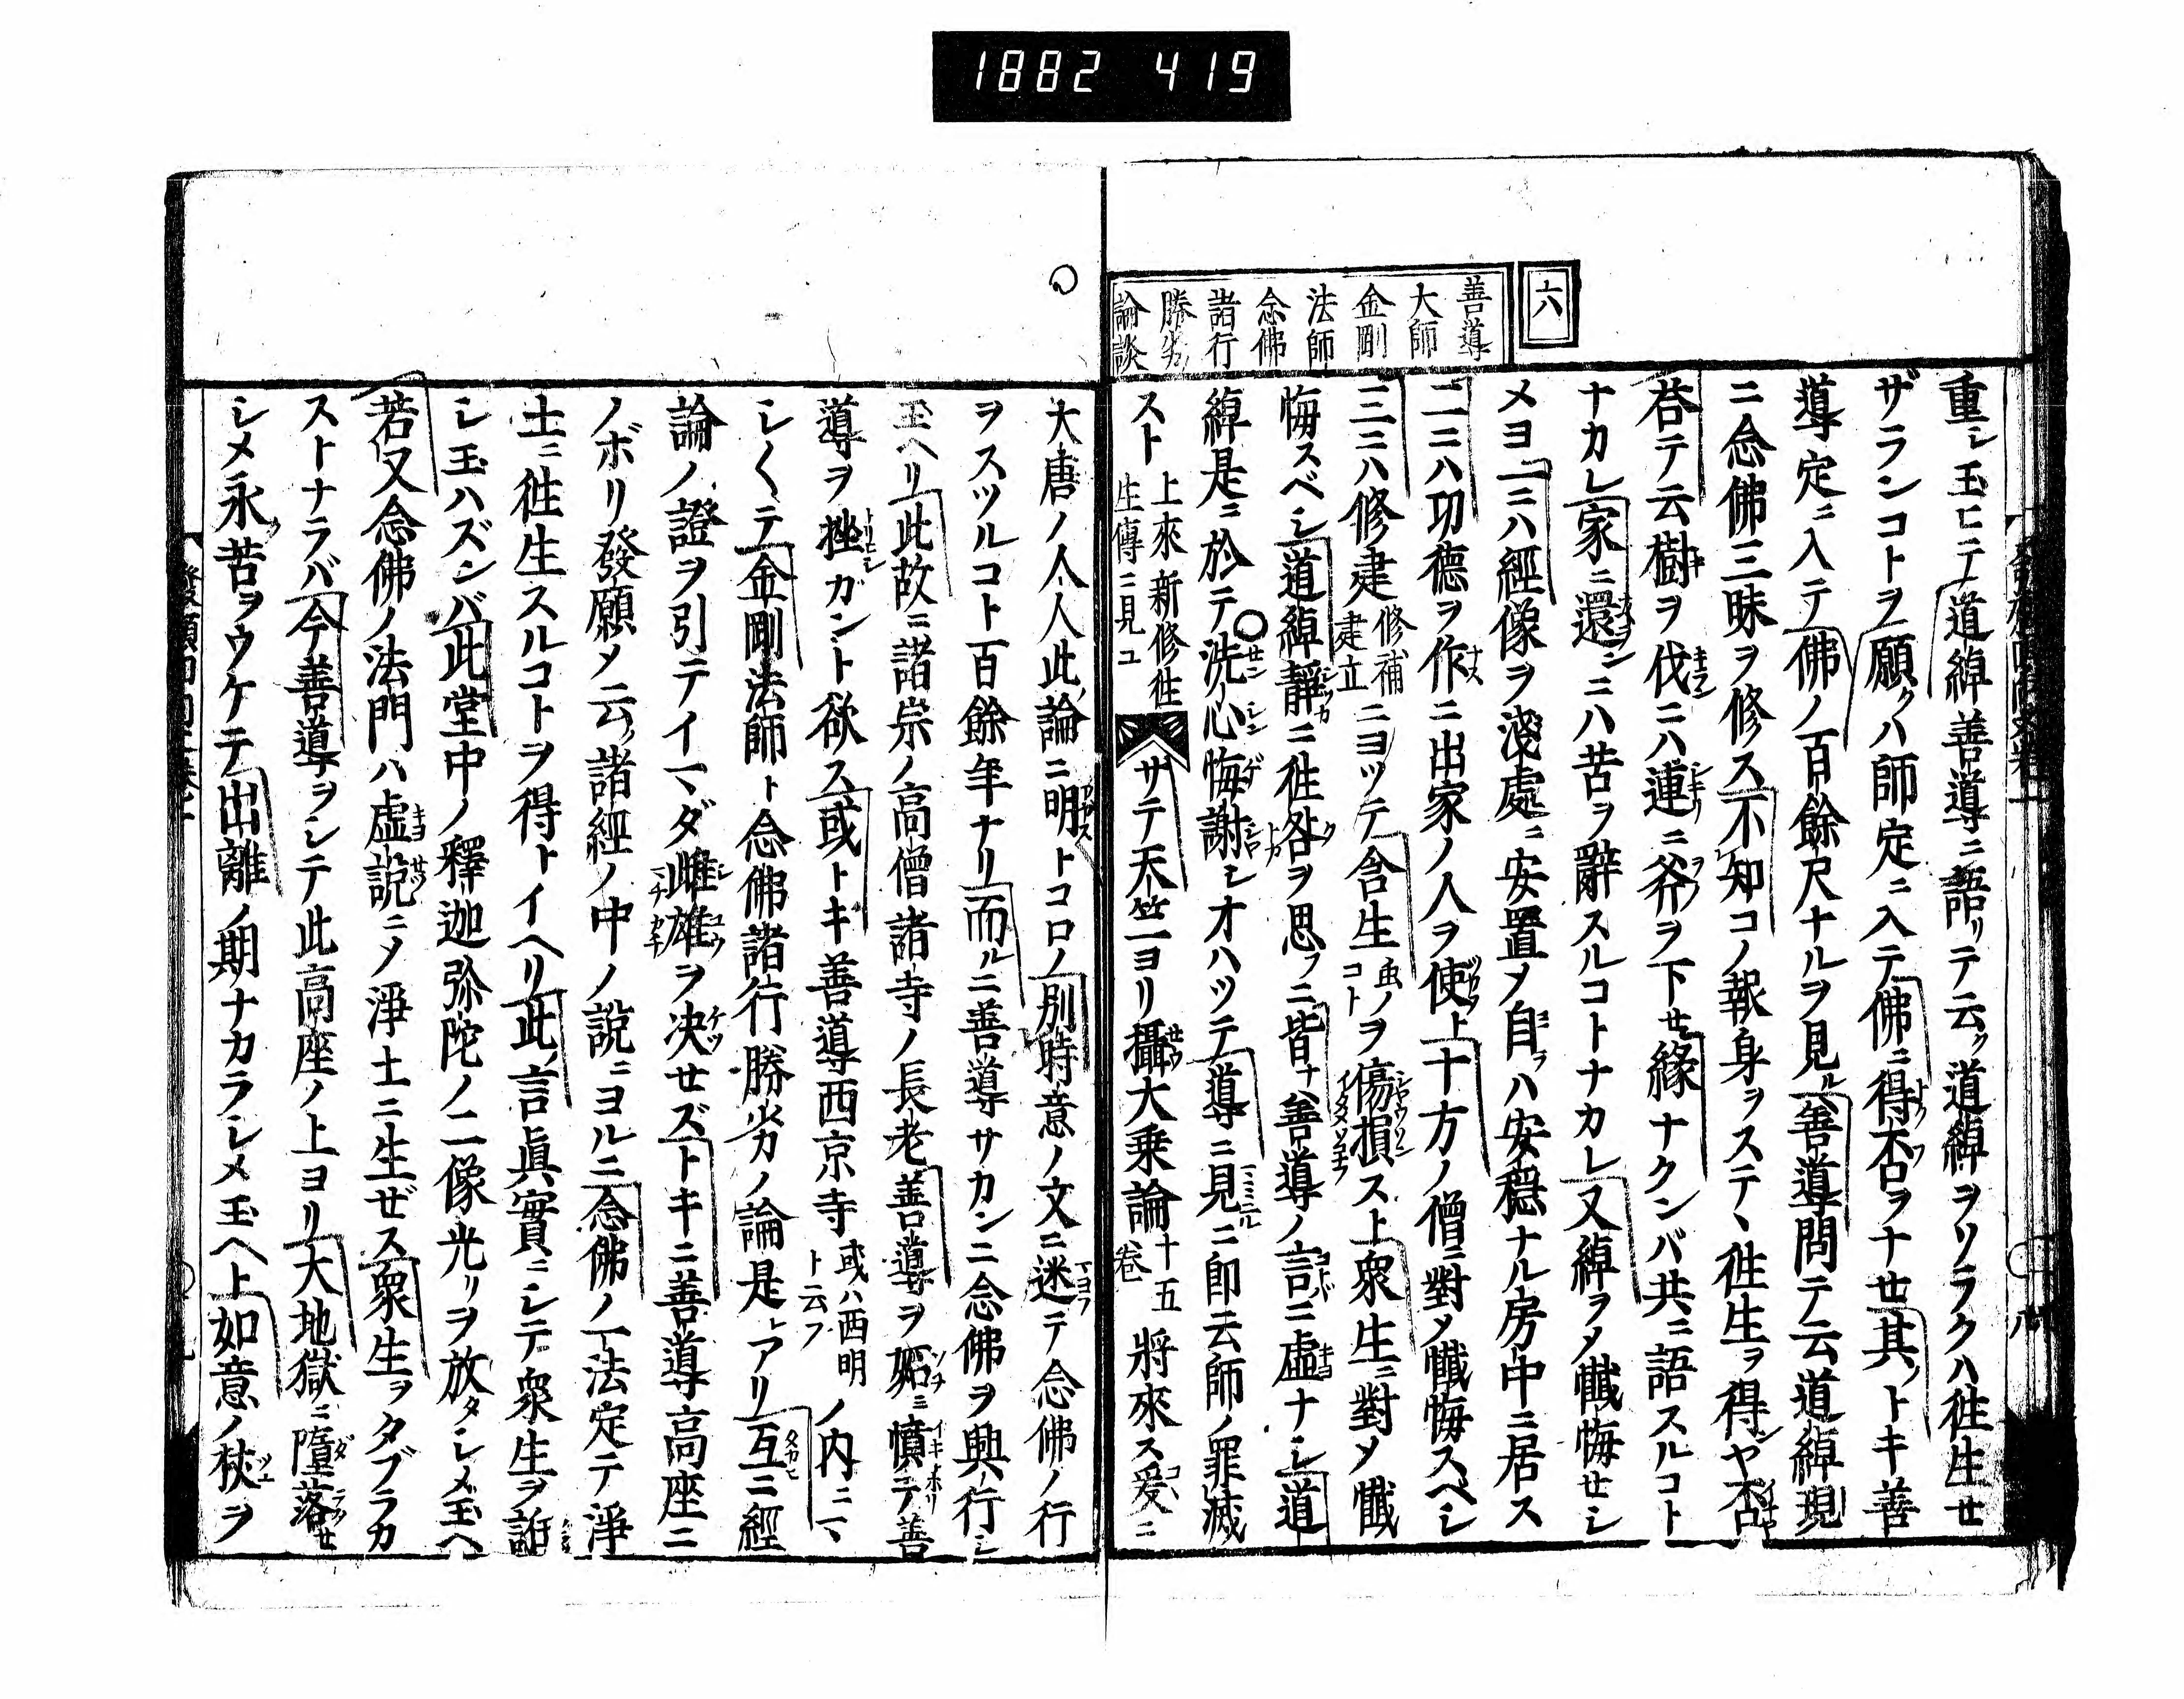 1882 419
六
善導
大師
金剛
法師
念佛
諸行
勝劣
論談
重シ玉ヒニ道綽善導ニ語リテ云ク道綽ヲソラクハ往生セ
ザランコトヲ願クハ師定ニ入テ佛ニ得否ヲナセ其ノトキ善
導定ニ入テ佛ノ百餘尺ナルヲ見ル善導問テ云道綽現
ニ念佛三昧ヲ修ス不知コノ報身ヲステ、往生ヲ得ンヤ否
荅テ云樹ヲ伐ニハ連ニ斧ヲ下セ縁ナクンバ共ニ語スルコト
ナカレ家ニ還ンニハ苦ヲ辭スルコトナカレ又綽ヲメ懺悔セシ
メヨ一ニハ經像ヲ淺處ニ安置メ自ラハ安穩ナル房中ニ居ス
二ニハ功德ヲ作ニ出家ノ人ヲ使フ上十方ノ僧ニ對メ懺悔スベシ
三ニハ修建修補建立ニヨツテ含生虫ノコトヲ傷損ス上衆生ニ對メ懺
悔スベシ道綽靜ニ往咎ヲ思フニ皆ナ善導ノ言ニ虛ナシ道
綽是ニ於テ洗心悔謝シオハツテ導ニ見ニ即云師ノ罪滅
スト上來新修往生傳ニ見ユ サテ天竺ヨリ攝大乗論十五卷將來ス爰ニ
大唐ノ人人此論ニ明トコロノ別時意ノ文ニ迷テ念佛ノ行
ヲスツルコト百餘年ナリ而ルニ善導サカンニ念佛ヲ興行シ
玉ヘリ此故ニ諸宗ノ高僧諸寺ノ長老善導ヲ妬ミ憤テ善
導ヲ挫ガント欲ス或トキ善導西京寺或ハ西明ト云フノ内ニヽ
シ〳〵テ金剛法師ト念佛諸行勝劣ノ論是レアリ互ニ經
論ノ證ヲ引テイマダ雌雄ヲ决セズトキニ善導高座ニ
ノボリ發願メ云諸經ノ中ノ説ニヨルニ念佛ノ一法定テ淨
土ニ往生スルコトヲ得トイヘリ此ノ言眞實ニシテ衆生ヲ誑
シ玉ハズンバ此堂中ノ釋迦弥陀ノ二像光リヲ放タシメ玉ヘ
若又念佛ノ法門ハ虛説ニメ淨土ニ生ゼズ衆生ヲタブラカ
ストナラバ今善導ヲシテ此高座ノ上ヨリ大地獄ニ墮落セ
シメ永ク苦ヲウケテ出離ノ期ナカラシメ玉ヘ上如意ノ杖ヲ